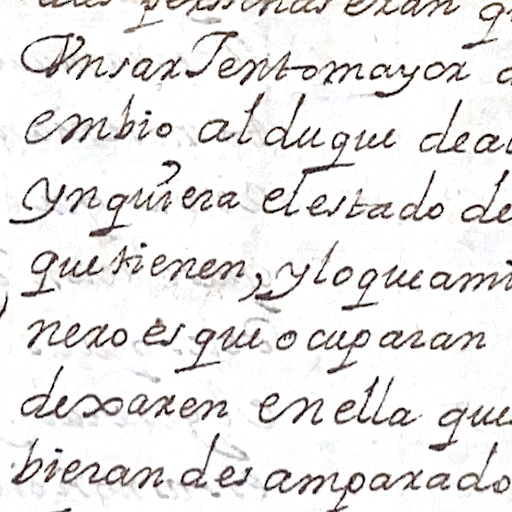 das personas eran q
Vnsar Tentomayor a
embio al duque dea
ynquiera el estado de
que tienen, y lo que ami
nero es que ocuparan
dexaren en ella que
bieran des amparado